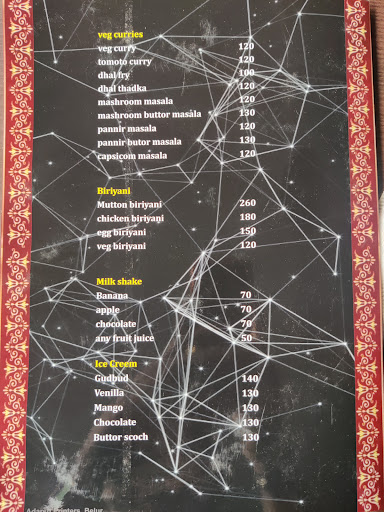 veg curries
veg curry 120
tomoto curry 120
dhal fry 100
dhal thadka 120
mashroom masala 120
mashroom buttor masala 130
pannir masala 120
pannir butor masala 130
capsicom masala 120
Biriyani
Mutton biriyani 260
chicken biriyani 180
egg biriyani 150
veg biriyani 120
Milk shake
Banana 70
apple 70
chocolate 70
any fruit juice 50
Ice Creem
Gudbud 140
Venilla 130
Mango 130
Chocolate 130
Buttor scoch 130
Printers, Belur